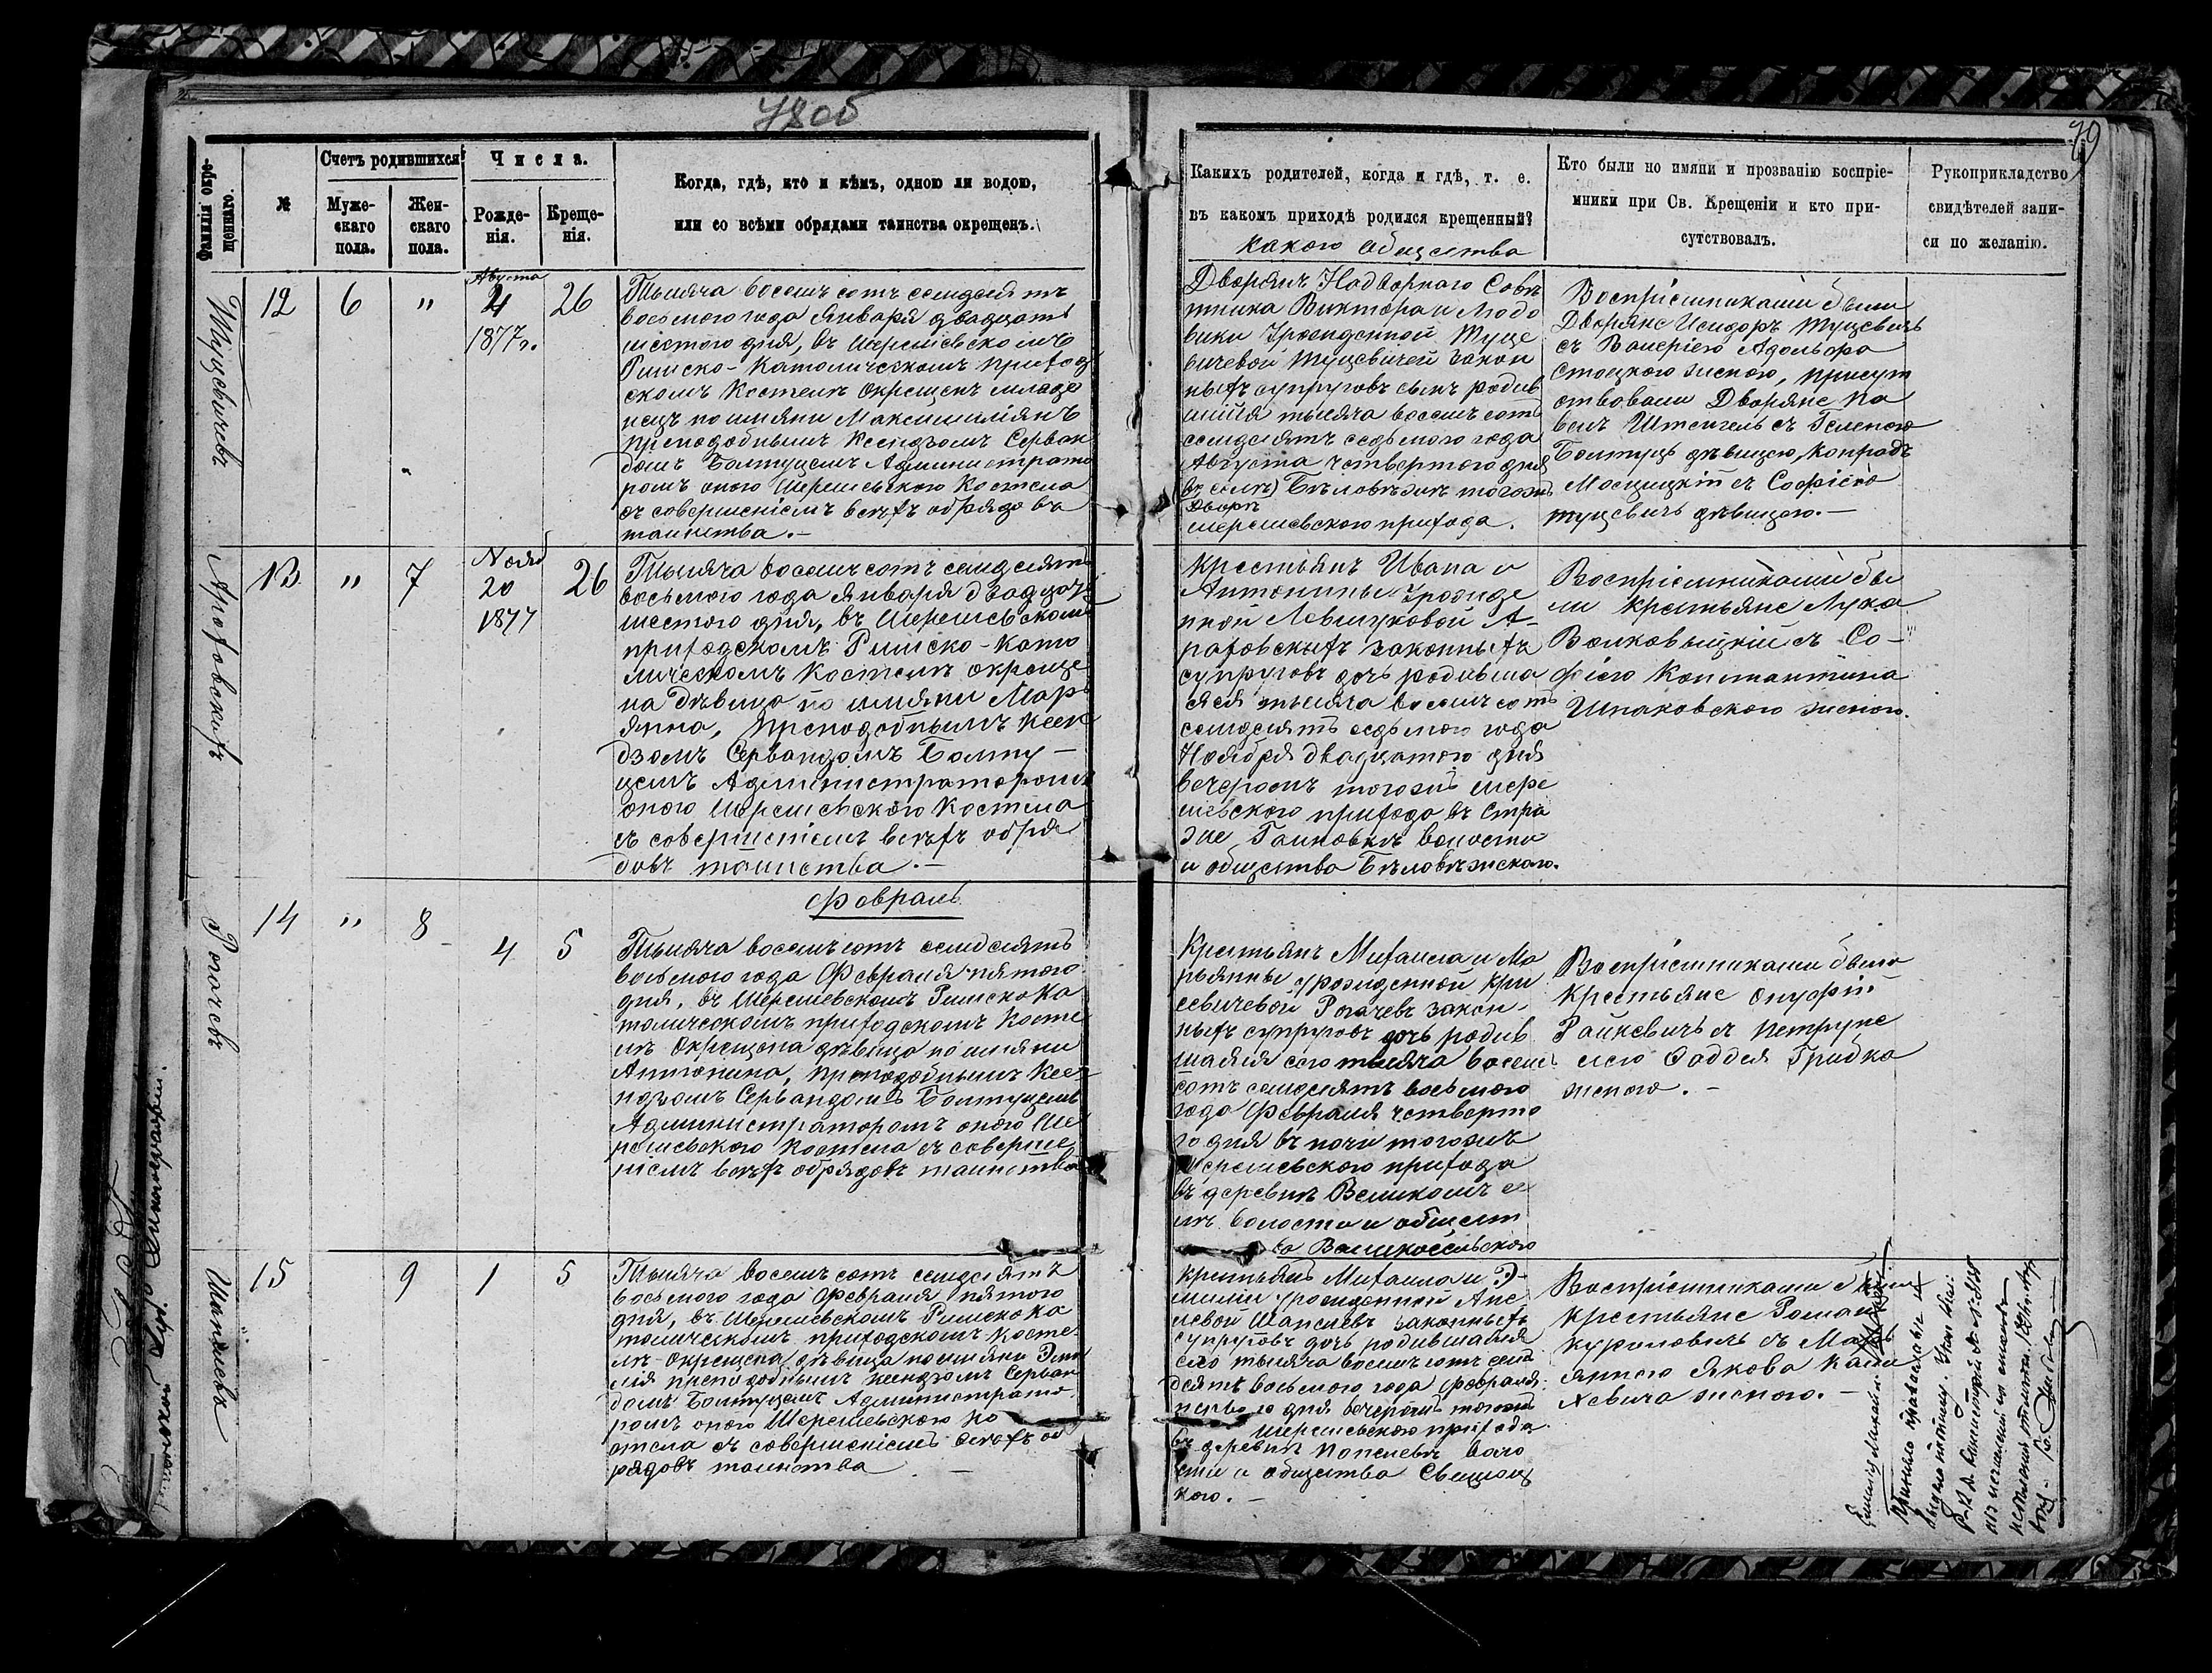 78об
79
Фамилія окре-
щеннаго.
№
Счетъ родившихся
Муже-
скаго
пола.
Жен-
скаго
пола.
Числа.
Рожде-
нія.
Креще-
нія.
Когда, гдѣ, кто и кѣмъ, одною ли водою,
или со всѣми обрядами таинства окрещенъ.
Какихъ родителей, когда и гдѣ, т. е.
въ какомъ приходѣ родился крещенный?
какого общества
Кто были по имяни и прозванію воспріе-
мники при Св. Крещеніи и кто при-
сутствовалъ.
Рукоприкладство
свидѣтелей запи-
си по желанію.
Туцевичевъ
12
6
"
Августа
4
1877г.
26
Тысяча восемь сотъ семдесятъ
восьмого года Января двадцать
шестого дня, въ Шерешевскомъ
Римско-Католическомъ приход
скомъ Костелѣ окрещенъ младе
нецъ по имяни Максимиліянъ
преподобнымъ Ксендзомъ Серван
домъ Болтуцемъ Администрато
ромъ оного Шерешевского Костела
съ совершеніемъ всѣхъ обрядовъ
таинства.—
Дворянъ Надворнаго Совѣ
тника Виктора и Людо
вики Урожденной Туце
вичевой Туцевичей закон
ныхъ супруговъ сынъ родив
шійся тысяча восемь сотъ
семдесятъ седьмого года
Августа четвертого дня
въ селѣ Бѣловѣжѣ тогожъ
Дворѣ
шерешевского прихода.
Воспріемниками были
Дворяне Исидоръ Туцевичъ
съ Валеріею Адольфа
Стоцкого женою, присут
ствовали Дворяне Па
велъ Штенгель съ Геленою
Болтуць дѣвицею, Конрадъ
Мосцицкій съ Софіею
Туцевичъ дѣвицею.—
Ароховскихъ
13
"
7
Нояб
20
1877
26
Тысяча восемь сотъ семдесятъ
восьмого года Января двадцать
шестого дня, въ Шерешевскомъ
приходскомъ Римско-Като
лическомъ Костелѣ окреще
на дѣвица по имяни Марь
янна, преподобнымъ Ксен
дзомъ Сервандомъ Болту—
цемъ Администраторомъ
оного Шерешевского Костела
съ совершеніемъ всѣхъ обря
довъ таинства.—
Крестьянъ Ивана и
Антонины урожде
нной Левчуковой А-
раховскихъ законныхъ
супруговъ дочь родивша
яся тысяча восемь сотъ
семдесятъ седьмого года
Ноября двадцатого дня
вечеромъ тогожъ шере
шевского прихода въ Стра
же Гайновкѣ волости
и общества Бѣловѣжского.
Воспріемниками бы
ли крестьяне Лука
Волковыцкій съ Со-
фіею Константина
Шпаковского женою.
Рогачевъ
14
"
8
4
5
Февраль
Тысяча восемь сотъ семдесятъ
восьмого года Февраля пятого
дня, въ Шерешевскомъ Римско Ка
толическомъ приходскомъ Косте
лѣ Окрещена дѣвица по имяни
Антонина, преподобнымъ Ксе
ндзомъ Сервандомъ Болтуцемъ
Администраторомъ оного Ше
решевского Костела съ соверше
ніемъ всѣхъ обрядовъ таинства
Крестьянъ Михаила и Ма
рьянны урожденной Кри
севичевой Рогачевъ закон
ныхъ супруговъ дочь родив
шаяся сего тысяча восемь
сотъ семдесятъ восьмого
года Февраля четверто
го дня въ ночи тогожъ
Шерешевского прихода
въ деревнѣ Великомъ се
лѣ волости и общест
ва Великосельского
Воспріемниками были
Крестьяне Онуфрій
Райкевичъ съ Петруне
лею Фаддея Грибка
женою.—
Шапелевъ
15
9
1
5
Тысяча восемь сотъ семдесятъ
восьмого года Февраля пятого
дня, въ Шерешевскомъ Римско Ка
толическомъ приходскомъ Косте
лѣ Окрещена дѣвица по имяни Эми
лія преподобнымъ ксендзомъ Серван
домъ Болтуцемъ Администрато
ромъ оного Шерешевского Ко
стела съ совершеніемъ всѣхъ об
рядовъ таинства —
Крестьянъ Михаила и Э-
миліи урожденной
Шапелевъ законныхъ
супруговъ дочь родившаяся
сего тысяча восемь сотъ сем
десятъ восьмого года Февраля
первого дня вечеромъ тогожъ
Шерешевского прихода
въ деревнѣ Попелевѣ воло
сти и общества Свищоц
кого.—
Воспріемниками были
Крестьяне Романъ
Куриловичъ съ Марь
янною Якова
женою.—